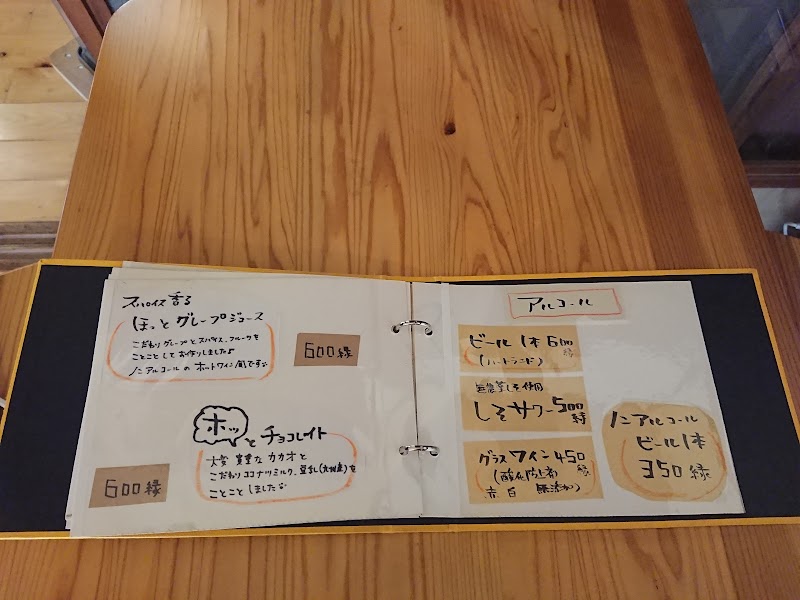 スパイス香る
ほっとグレープジュース
こだわりグレープとスパイス、フルーツを
ことことしてお作りしました♪
ノンアルコールのホットワイン風ですな
600縁
ホッ
とチョコレイト
大変貴重なカカオと
こだわりココナツミルク、豆乳(九州産)を
ことことしましたな
600縁
アルコール
ビール1本600
縁
(ハートランド)
無農薬しそ使用
しそサワー500
縁
グラスワイン450
縁
(酸化防止剤
赤 白 無添加)
ノンアルコール
ビール1本
350縁